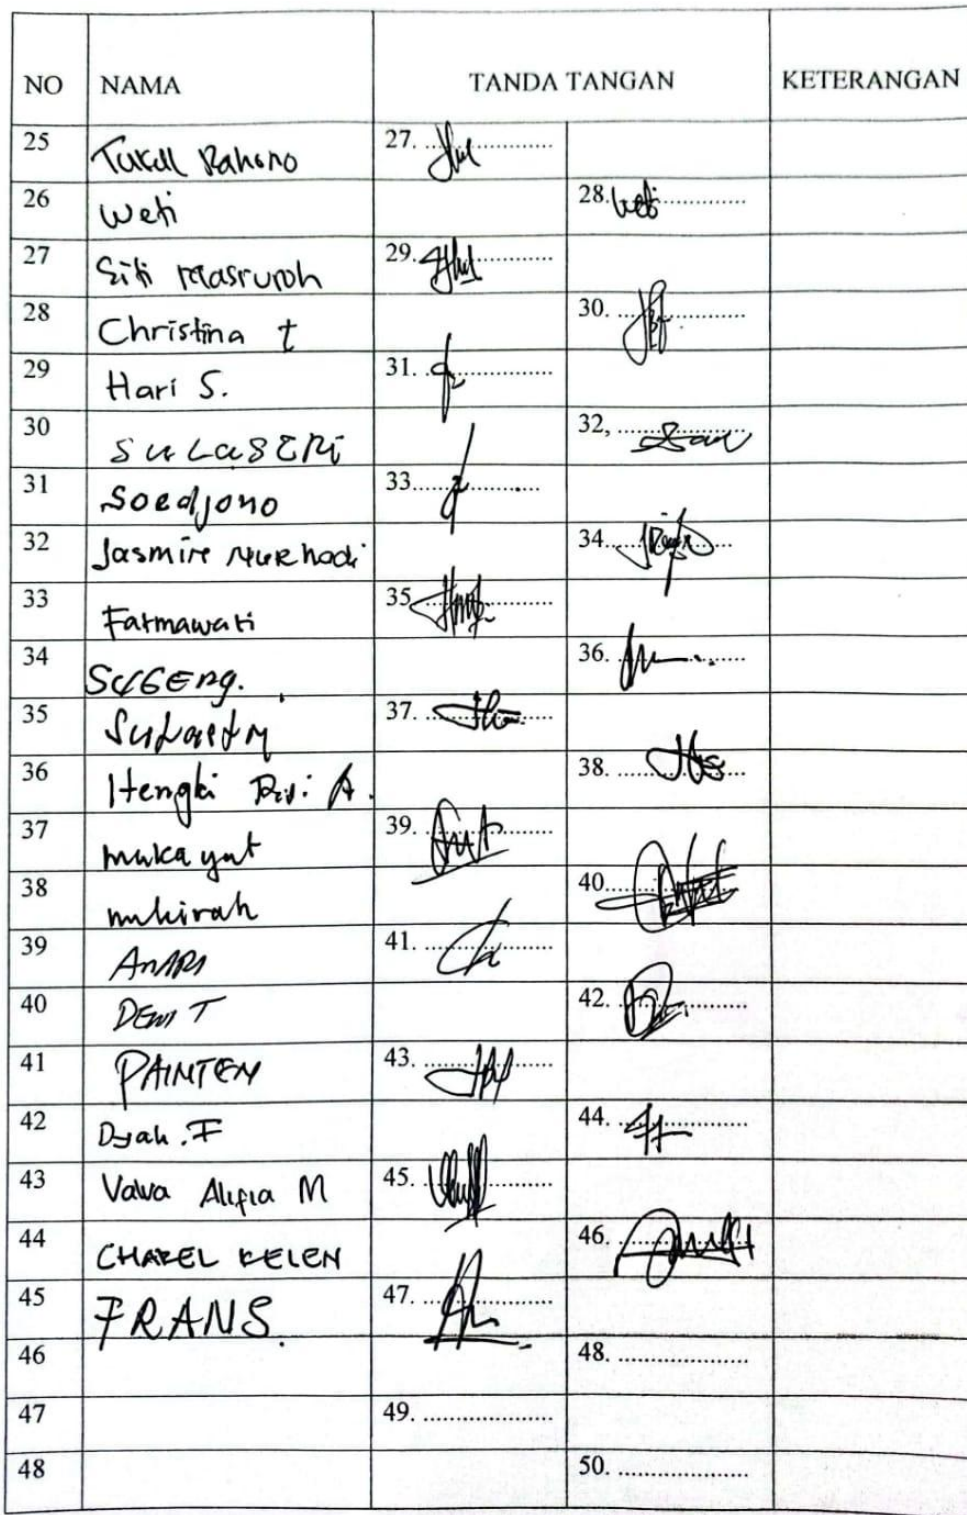 NO NAMA TANDA TANGAN KETERANGAN
25 Tukul Rahono 27. ....................
26 Weti 28. Weti ....................
27 Siti Masruroh 29. ....................
28 Christina t 30. ....................
29 Hari S. 31. ....................
30 SULASTRI 32, ....................
31 Soedjono 33....................
32 Jasmire Nurhadi 34. ....................
33 Fatmawati 35. ....................
34 SUGENG. 36. ....................
35 Sulastri 37. ....................
36 Hengki A. 38. ....................
37 mukayat 39. ....................
38 mukirah 40. ....................
39 41. ....................
40 DEWI T 42. ....................
41 PAINTEN 43. ....................
42 Dyah .F 44. ....................
43 Valva Alifia M 45. ....................
44 CHAREL KELEN 46. ....................
45 FRANS. 47. ....................
46 48. ....................
47 49. ....................
48 50. ....................